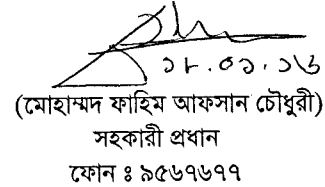 ১৮.০১.১৬
(মোহাম্মদ ফাহিম আফসান চৌধুরী)
সহকারী প্রধান
ফোন ঃ ৯৫৬৭৬৭৭